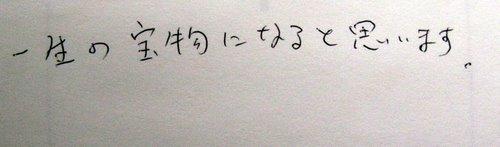 一生の宝物になると思います。